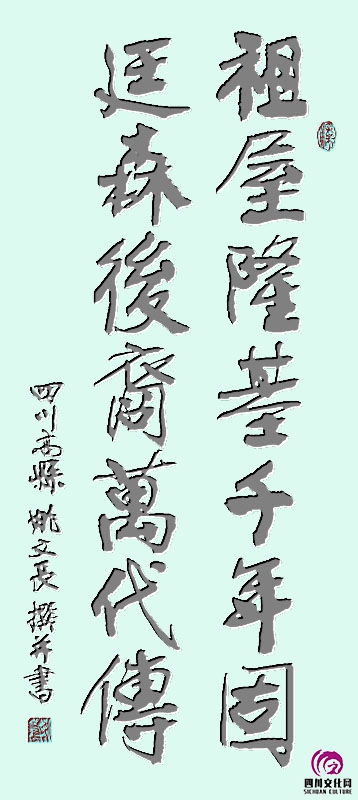 祖屋隆基千年固
廷森後裔萬代傳
四川高縣 姚文長 撰并書
四川文化网
SICHUAN CULTURE